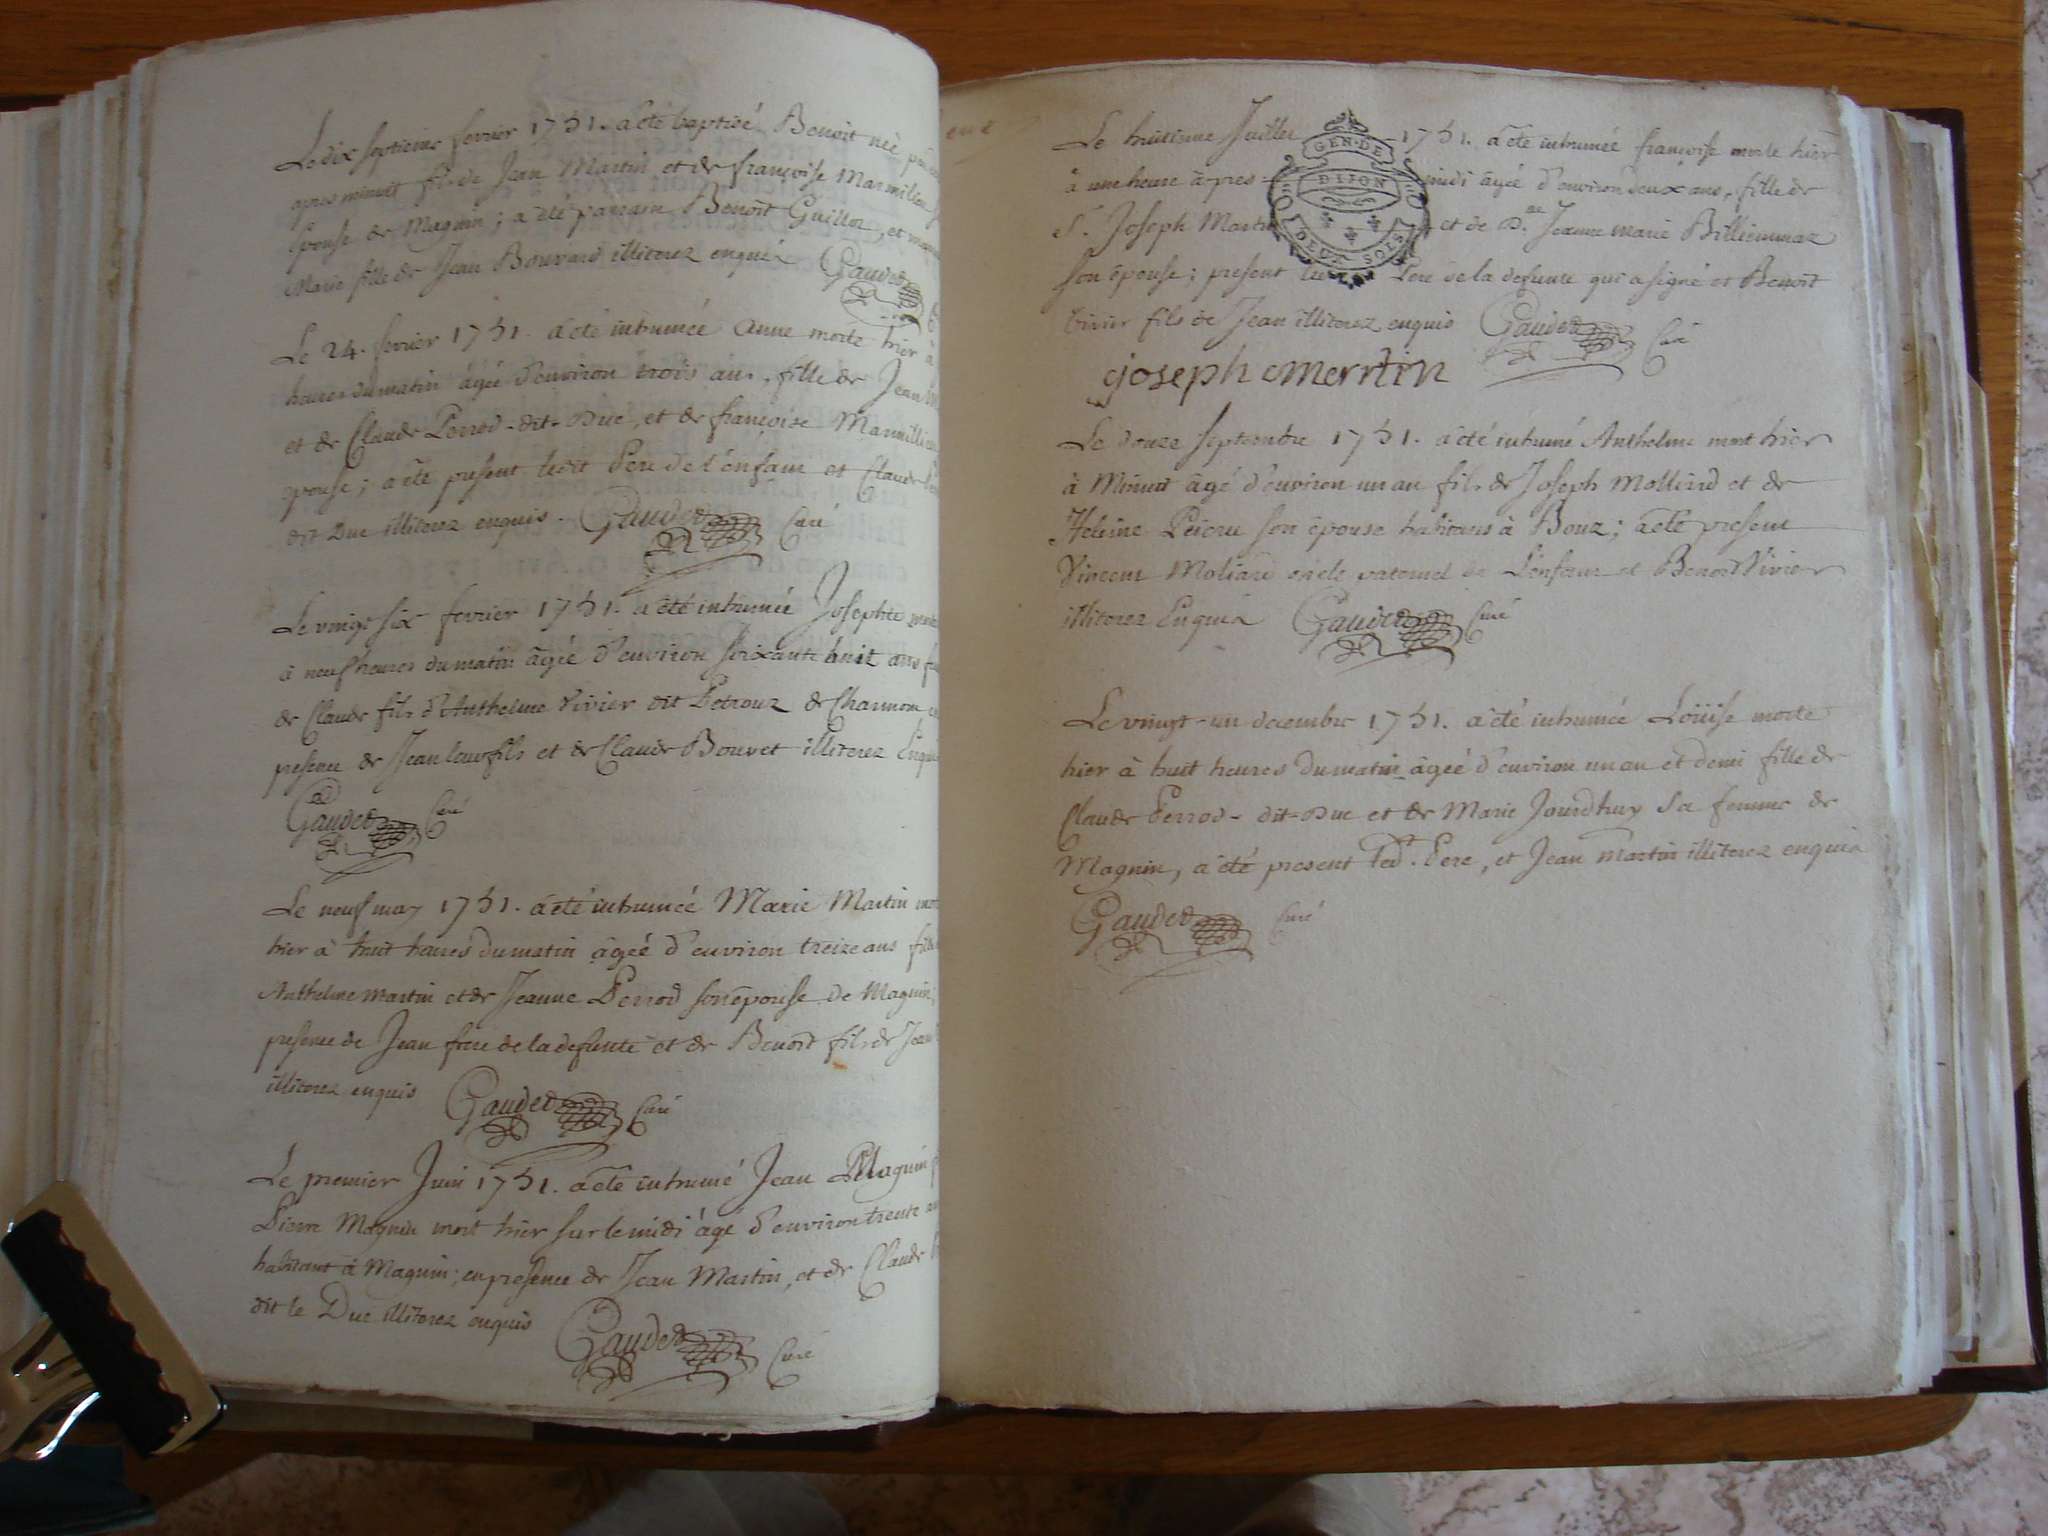 Le dix septieme fevrier 1751. a été baptisé Benoit né
apres minuit fils de Jean Martin et de françoise Marmilion
Epouse de Magnin; a été parrain Benoit Guillot, et
Marie fille de Jean Bouvard illiterez enquis Gaudet
Le 24. fevrier 1751. a été inhumée anne morte hier à
heures du matin âgée d'environ trois ans, fille de Jean
et de Claude Perrod-dit-Duc, et de françoise Marmillion
epouse; a été present ledit Pere de l'enfant et Claude
dit Duc illiterez enquis. Gaudet Curé
Le vingt six fevrier 1751. a été inhumée Josephte morte
à neuf heures du matin âgée d'environ soixante huit ans
de Claude fils d'Anthelme Vivier dit Petrouz de Charmont
presence de Jean leur fils et de Claude Bouvet illiterez Enquis
Gaudet Curé
Le neuf may 1751. a été inhumée Marie Martin
hier à huit heures du matin âgée d'environ treize ans
Anthelme Martin et de Jeanne Perrod son épouse de Magnin,
presence de Jean frere de la defunte et de Benoit fils de Jean
illiterez enquis Gaudet Curé
Le premier Juin 1751. a été inhumé Jean Magnin
Pierre Magnin mort hier sur le midi âgé d'environ trente
habitant à Magnin; en presence de Jean Martin, et de Claude
dit le Duc illiterez enquis Gaudet Curé
Le huitieme Juillet 1751. a été inhumée françoise morte hier
GEN. DE
DIJON
DEUX SOLS
à une heure après midi âgée d'environ deux ans, fille de
Sr. Joseph Martin et de Dne. Jeanne Marie Billiemmaz
son épouse; present Pere de la defunte qui a signé et Benoit
Vivier fils de Jean illiterez enquis Gaudet Curé
joseph merrtin
Le douze septembre 1751. a été inhumé Anthelme mort hier
à Minuit âgé d'environ un an fils de Joseph Molliard et de
Heleine son épouse habitans à Bouz; a été present
Vincent Moliard oncle paternel de L'enfant et Benoit Vivier
illiterez Enquis Gaudet Curé
Le vingt-un decembre 1751. a été inhumée Loüise morte
hier à huit heures du matin âgée d'environ un an et demi fille de
Claude Perrod-dit-Duc et de Marie Jourdhuy sa femme de
Magnin, a été present led.t Pere, et Jean Martin illiterez enquis
Gaudet Curé